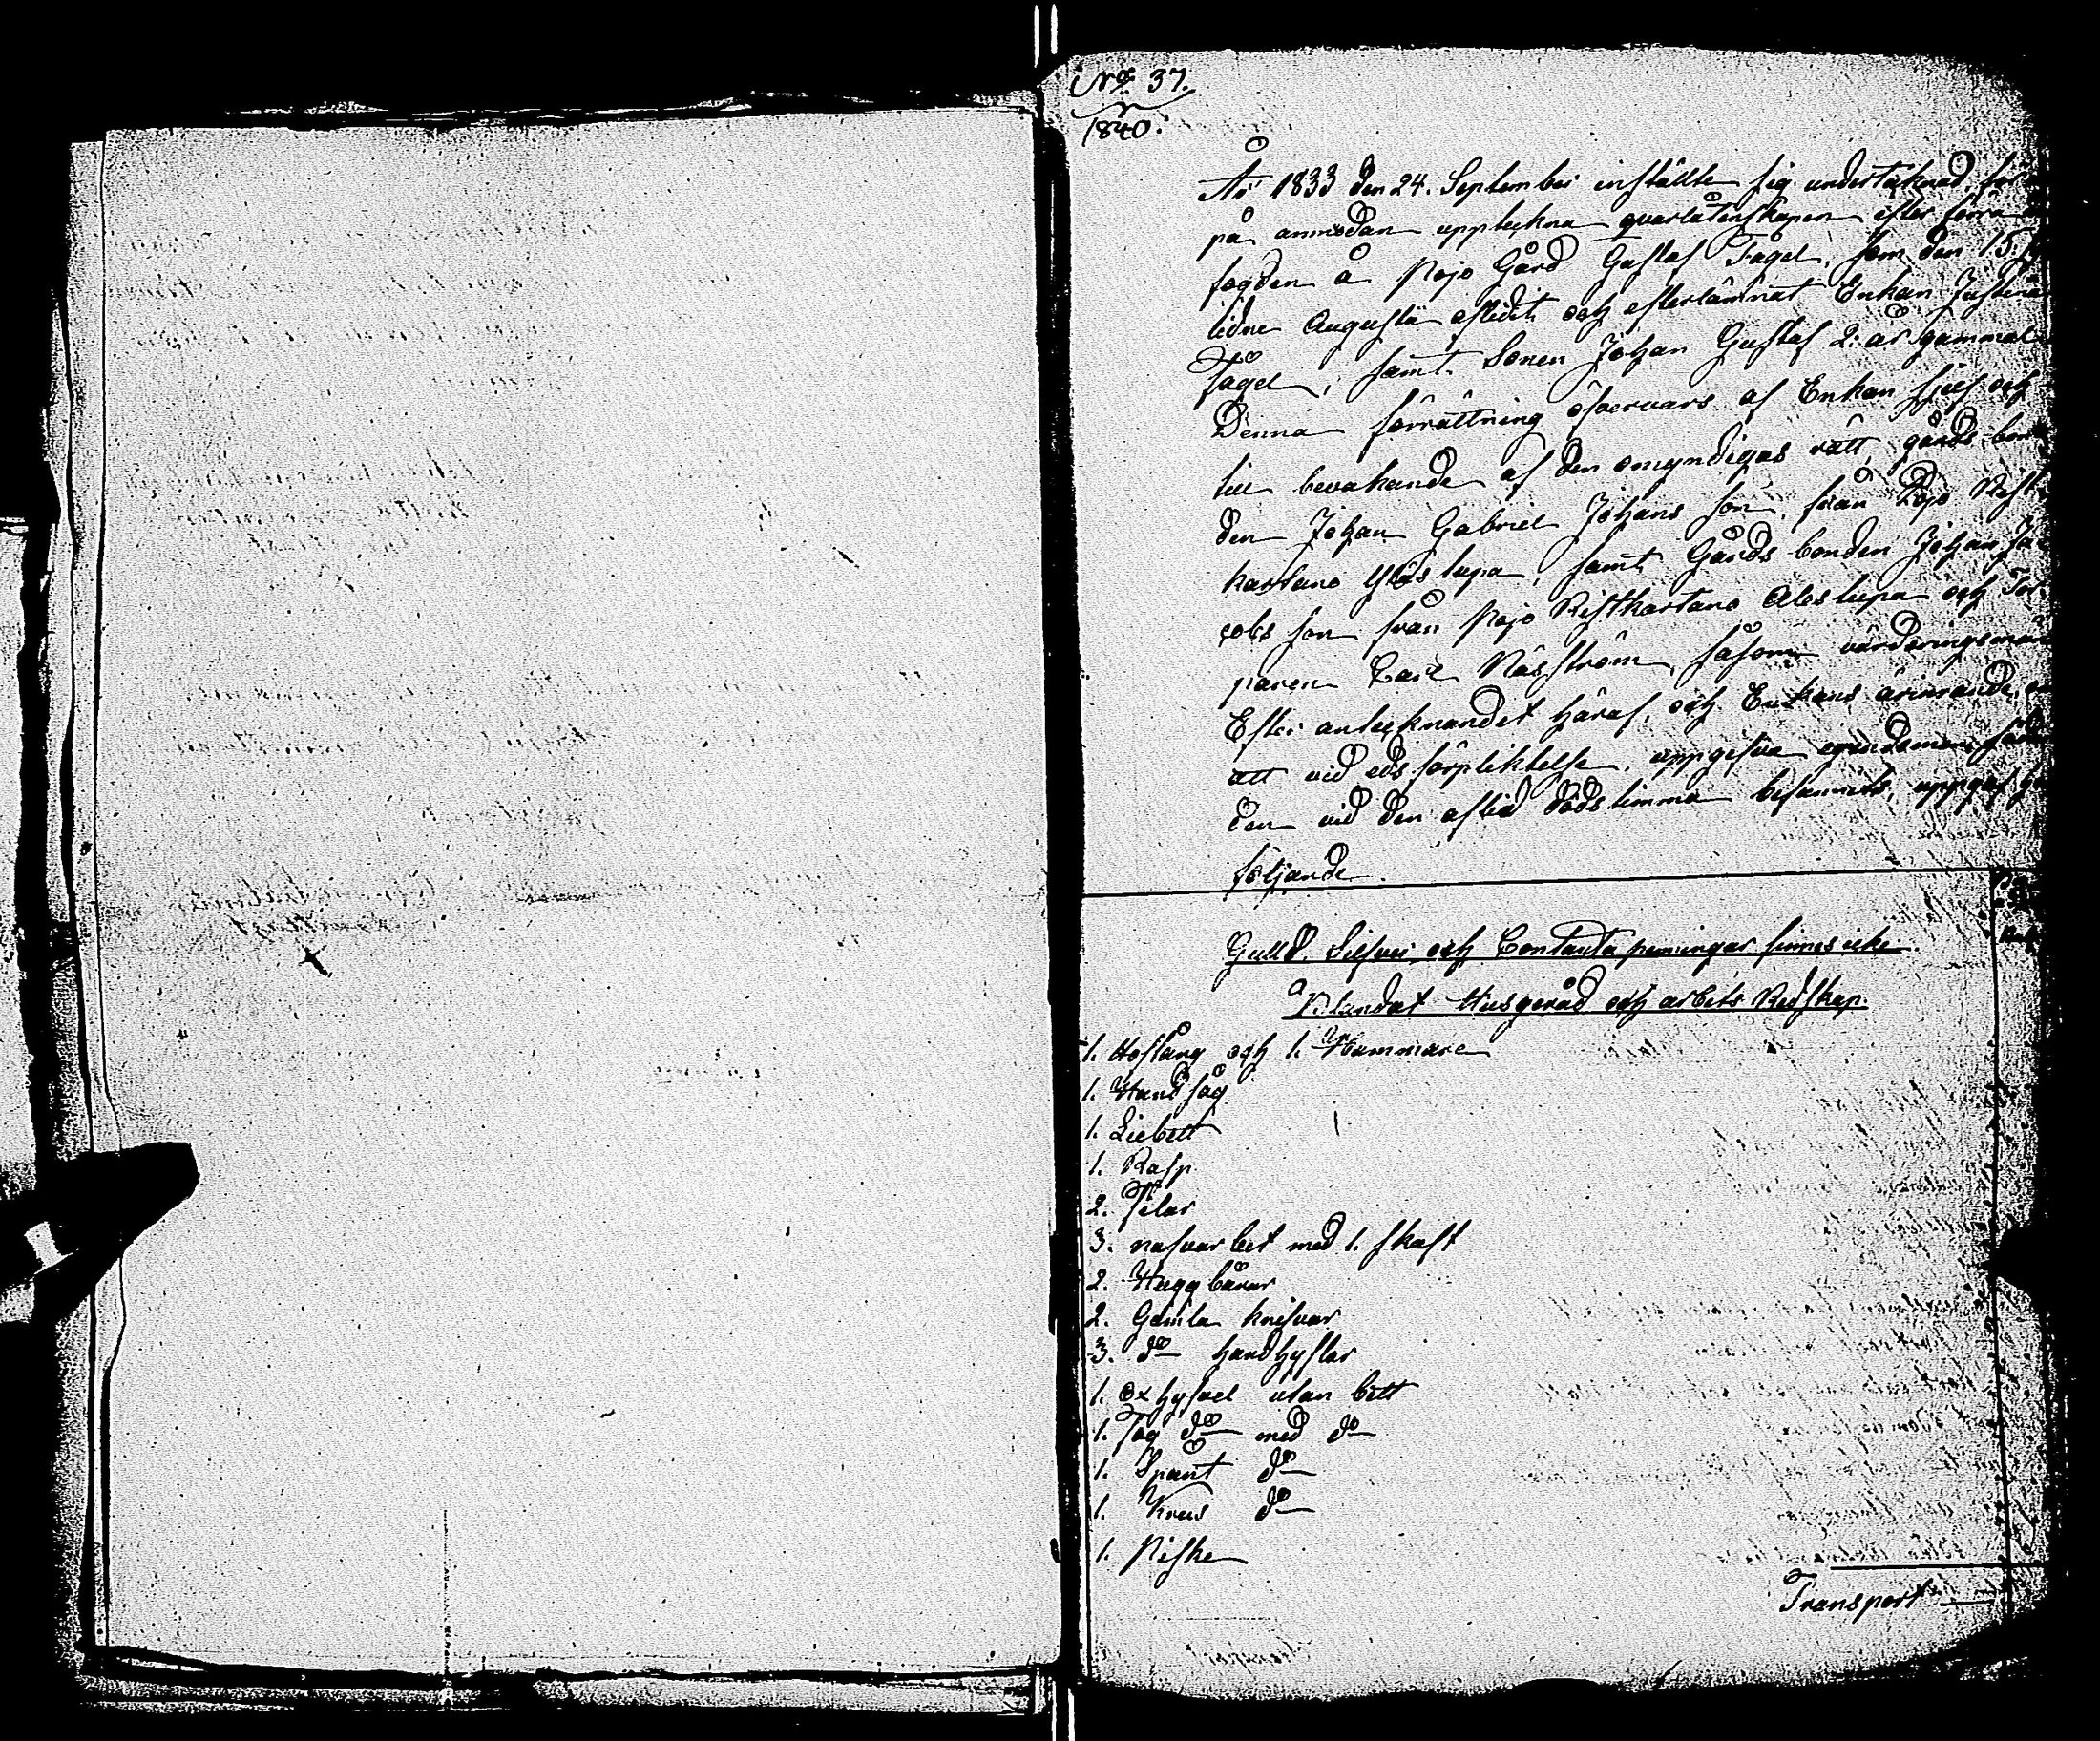 No 37.
1840.
År 1833 den 24. September inställte sig undertecknad, för
på anmodan uppteckna qvarlåtenskapen efter förra
fogden å Pojo Gård Gustaf Fagel, som den 15
lidne Augusti aflidit och efterlämnat Enkan Justina
Fagel, samt Sonen Johan Gustaf 2: år gammal
Denna förrättning öfvervars af Enkan sjelf och
till bevakande af den omyndigas rätt, gårds bon
den Johan Gabriel Johans son, från Pojo Rist
kartano Ylöstupa, samt Gårds bonden Johan Ja
cobs son från Pojo Ristkartano Alostupa och Tor
paren Carl Näsström, såsom värderingsmän
Efter antecknandet häraf, och Enkans ärinrande, om
att vid eds förpliktelse, uppgifva egendomen sådan
den vid den aflid dödstimma befunnits, uppgaf
följande.
Gulld. Silfver och Contanta penningar finnes icke.
Blandat Husgeråd och arbets Redskap.
1. Hoftång och 1. Hammare
1. Handsåg
1. Liebett
1. Rasp
2. Filar
3. nafvar bet med 1. skaft
2. Huggbårar
2. Gamla knifvar
3. do handhyflar
1. ox hyfvel utan bett
1. Fog do med do
1. Spånt do
1. Krus do
1. Piska
Transport